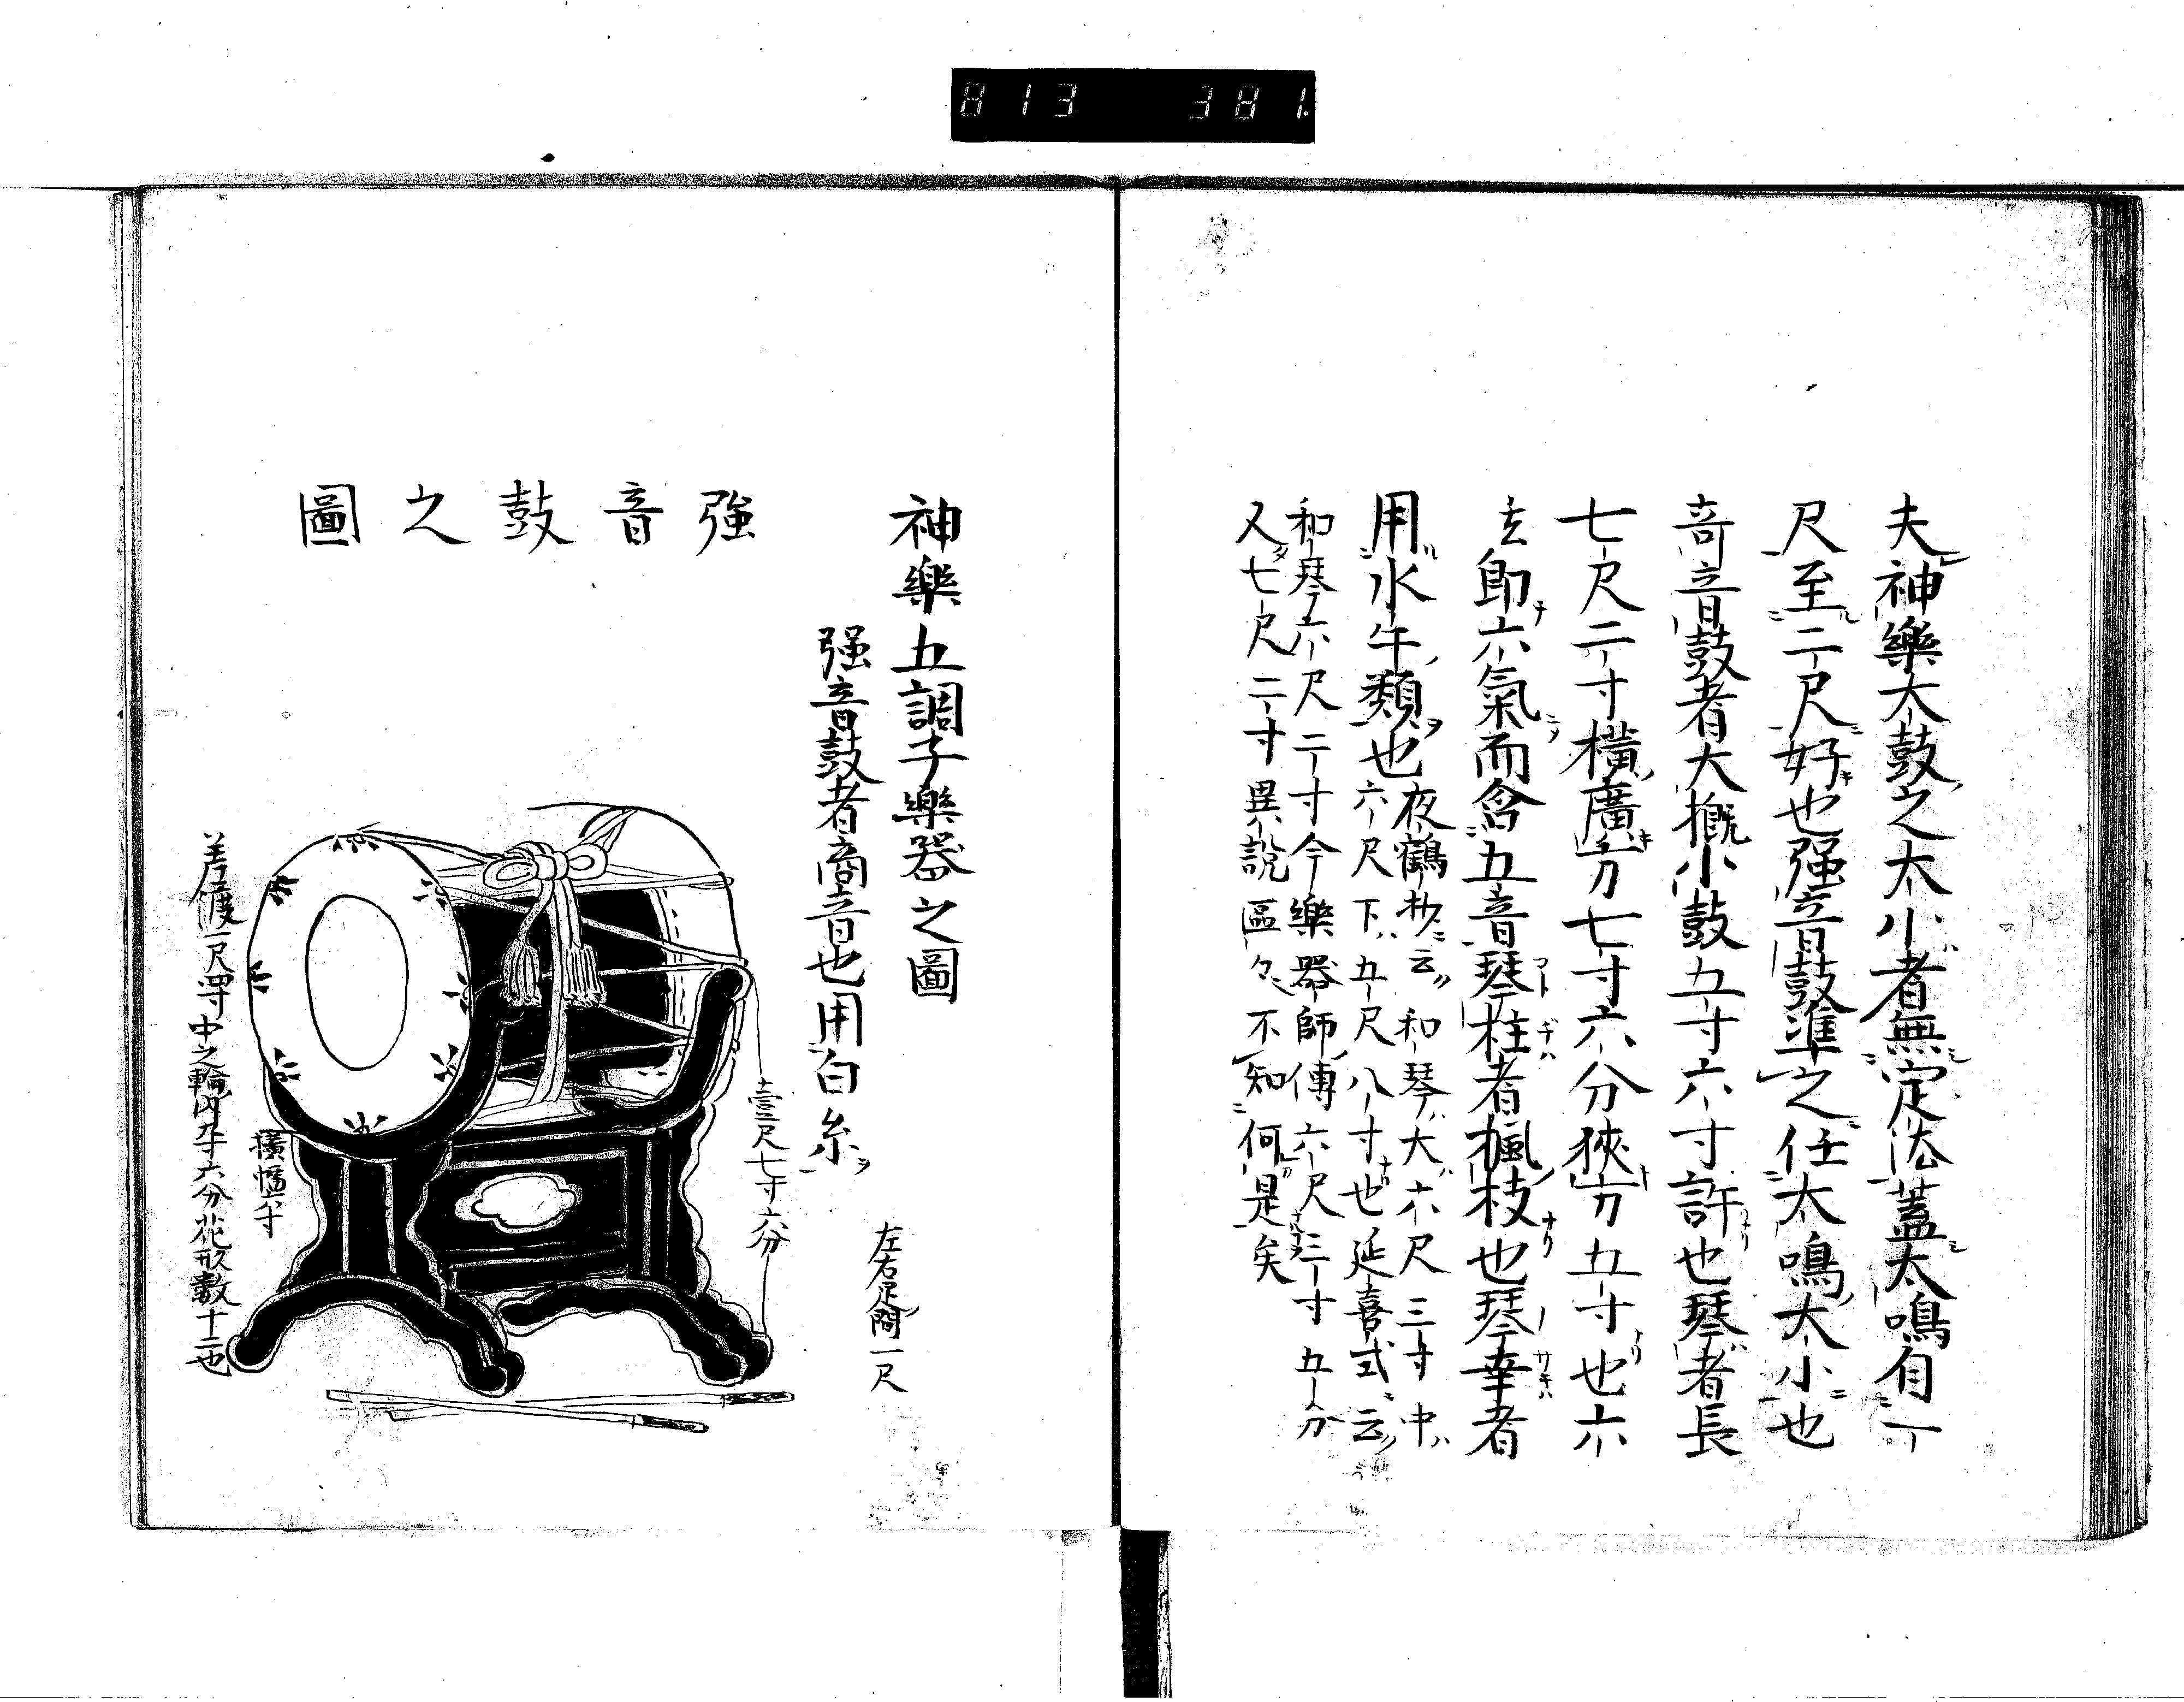 813 381
夫神樂大鼓之大小者無定法蓋太鳴自一
尺至二尺好也强音鼓準之任太鳴大小也
奇音鼓者大概小鼓五寸六寸許也琴者長
七尺二寸横廣方七寸六分狹方五寸也六
玄即六氣而含五音琴柱者楓枝也琴幸者
用水牛類也夜鶴抄云和琴大六尺三寸中
六尺下五尺八寸也延喜式云
和琴六尺二寸今樂器師傳六尺三寸五分
又七尺二寸異說區々不知何是矣
神樂五調子樂器之圖
强音鼓者商音也用白糸
強音鼓之圖
左右足間一尺
壹尺七寸六分
横幅六寸
差渡一尺四寸中之輪内九寸六分花形數十二也